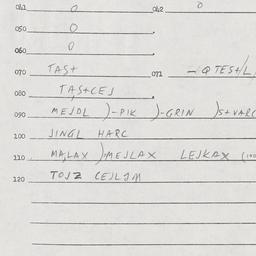 041 0 042 0
050 0
060 0
070 TAS+ 071 - Q TES+/L
080 TAS+CEJ
090 MEJDL )-PIK )-GRIN )S+VARC
100 JINGL HARC
110 MA,LAX )-MEJLAX LEJKAX
120 TOJZ CEJLJM